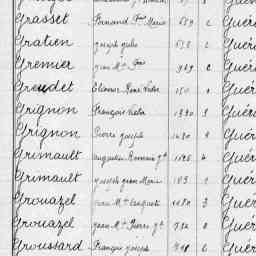 Grasset Fernand Pre Marie 559 2 Guér
Gratien Joseph Jules 573 2 Guér
Gremier Jean Mie 949 2 Guér
Greudet Etienne René Victor 150 1 Guér
Grignon François Victor 1390 3 Guér
Grignon Pierre Joseph 1480 4 Guér
Grimault Augustin Romain 1195 4 Guér
Grimault Joseph Jean Marie 183 1 Guér
Grouazel Jean Mie Auguste 1180 3 Guér
Grouazel Jean Mie Pierre 792 2 Guér
Groussard François Joseph Guér